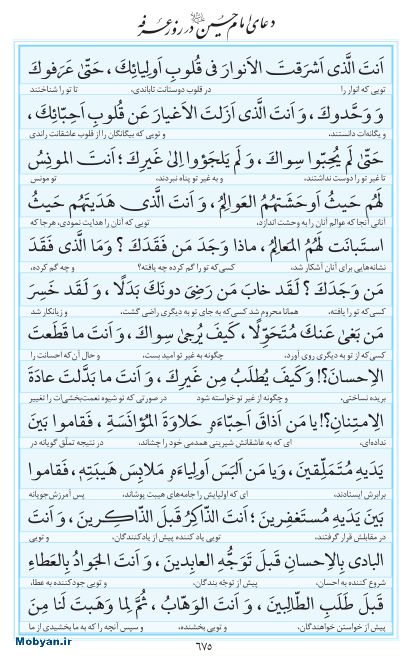 دعای امام حسین در روز عرفه
اَنتَ الَّذی اَشرَقتَ الاَنوارَ فی قُلوبِ اَولِیائِكَ، حَتّیٰ عَرَفوكَ
تویی که انوار را در قلوب دوستانت تاباندی، تا تو را شناختند
وَ وَحَّدوكَ، وَ اَنتَ الَّذی اَزَلتَ الاَغیارَ عَن قُلوبِ اَحِبّائِكَ،
و یگانه‌ات دانستند، و تویی که بیگانگان را از قلوب عاشقانت راندی
حَتّیٰ لَم یُحِبّوا سِواكَ، وَ لَم یَلجَؤوا اِلیٰ غَیرِكَ؛ اَنتَ المونِسُ
تا غیر تو را دوست نداشتند، و به غیر تو پناه نبردند، تو مونس
لَهُم حَیثُ اَوحَشَتهُمُ العَوالِمُ، وَ اَنتَ الَّذی هَدَیتَهُم حَیثُ
آنانی آنجا که عوالم آنان را به وحشت اندازد، تویی که آنان را هدایت نمودی، هرجا که
استَبانَت لَهُمُ المَعالِمُ، ماذا وَجَدَ مَن فَقَدَكَ؟ وَ مَا الَّذی فَقَدَ
نشانه‌هایی برای آنان آشکار شد، کسی‌که تو را گم کرده چه یافته؟ و چه گم کرده،
مَن وَجَدَكَ؟ لَقَد خابَ مَن رَضِیَ دونَكَ بَدَلًا، وَ لَقَد خَسِرَ
کسی‌که تو را یافته، همانا محروم شد کسی‌که به جای تو به دیگری راضی گشت، و زیانکار شد
مَن بَغیٰ عَنكَ مُتَحَوِّلًا، كَیفَ یُرجیٰ سِواكَ، وَ اَنتَ ما قَطَعتَ
کسی‌که از تو به دیگری روی آورد، چگونه به غیر تو امید بست، و حال آن‌که احسانت را
الاِحسانَ؟! وَ كَیفَ یُطلَبُ مِن غَیرِكَ، وَ اَنتَ ما بَدَّلتَ عادَةَ
بریده نساختی، و چگونه از غیر تو خواسته شود در صورتی که تو شیوه نعمت‌بخشی‌ات را تغییر
الاِمتِنانِ؟! یا مَن اَذاقَ اَحِبّاءَهُ حَلاوَةَ المُؤانَسَةِ، فَقاموا بَینَ
نداده‌ای، ای که به عاشقانش شیرینی همدمی خود را چشاند، در نتیجه تملّق گویانه در
یَدَیهِ مُتَمَلِّقینَ، وَ یا مَن اَلبَسَ اَولِیاءَهُ مَلابِسَ هَیبَتِهِ، فَقاموا
برابرش ایستادند، ای که اولیایش را جامه‌های هیبت پوشاند، پس آمرزش‌جویانه
بَینَ یَدَیهِ مُستَغفِرینَ؛ اَنتَ الذّاكِرُ قَبلَ الذّاكِرینَ، وَ اَنتَ
در مقابلش قرار گرفتند، تویی یاد کننده پیش از یادکنندگان، و تویی
البادی بِالاِحسانِ قَبلَ تَوَجُّهِ العابِدینَ، وَ اَنتَ الجَوادُ بِالعَطاءِ
شروع کننده به احسان، پیش از توجّه بندگان، و تویی جودکننده به عطا،
قَبلَ طَلَبِ الطّالِبینَ، وَ اَنتَ الوَهّابُ، ثُمَّ لِما وَهَبتَ لَنا مِنَ
پیش از خواستن خواهندگان، و تویی بخشنده، و سپس آنچه را که به ما بخشیدی از ما
٦٧٥
Mobyan.ir